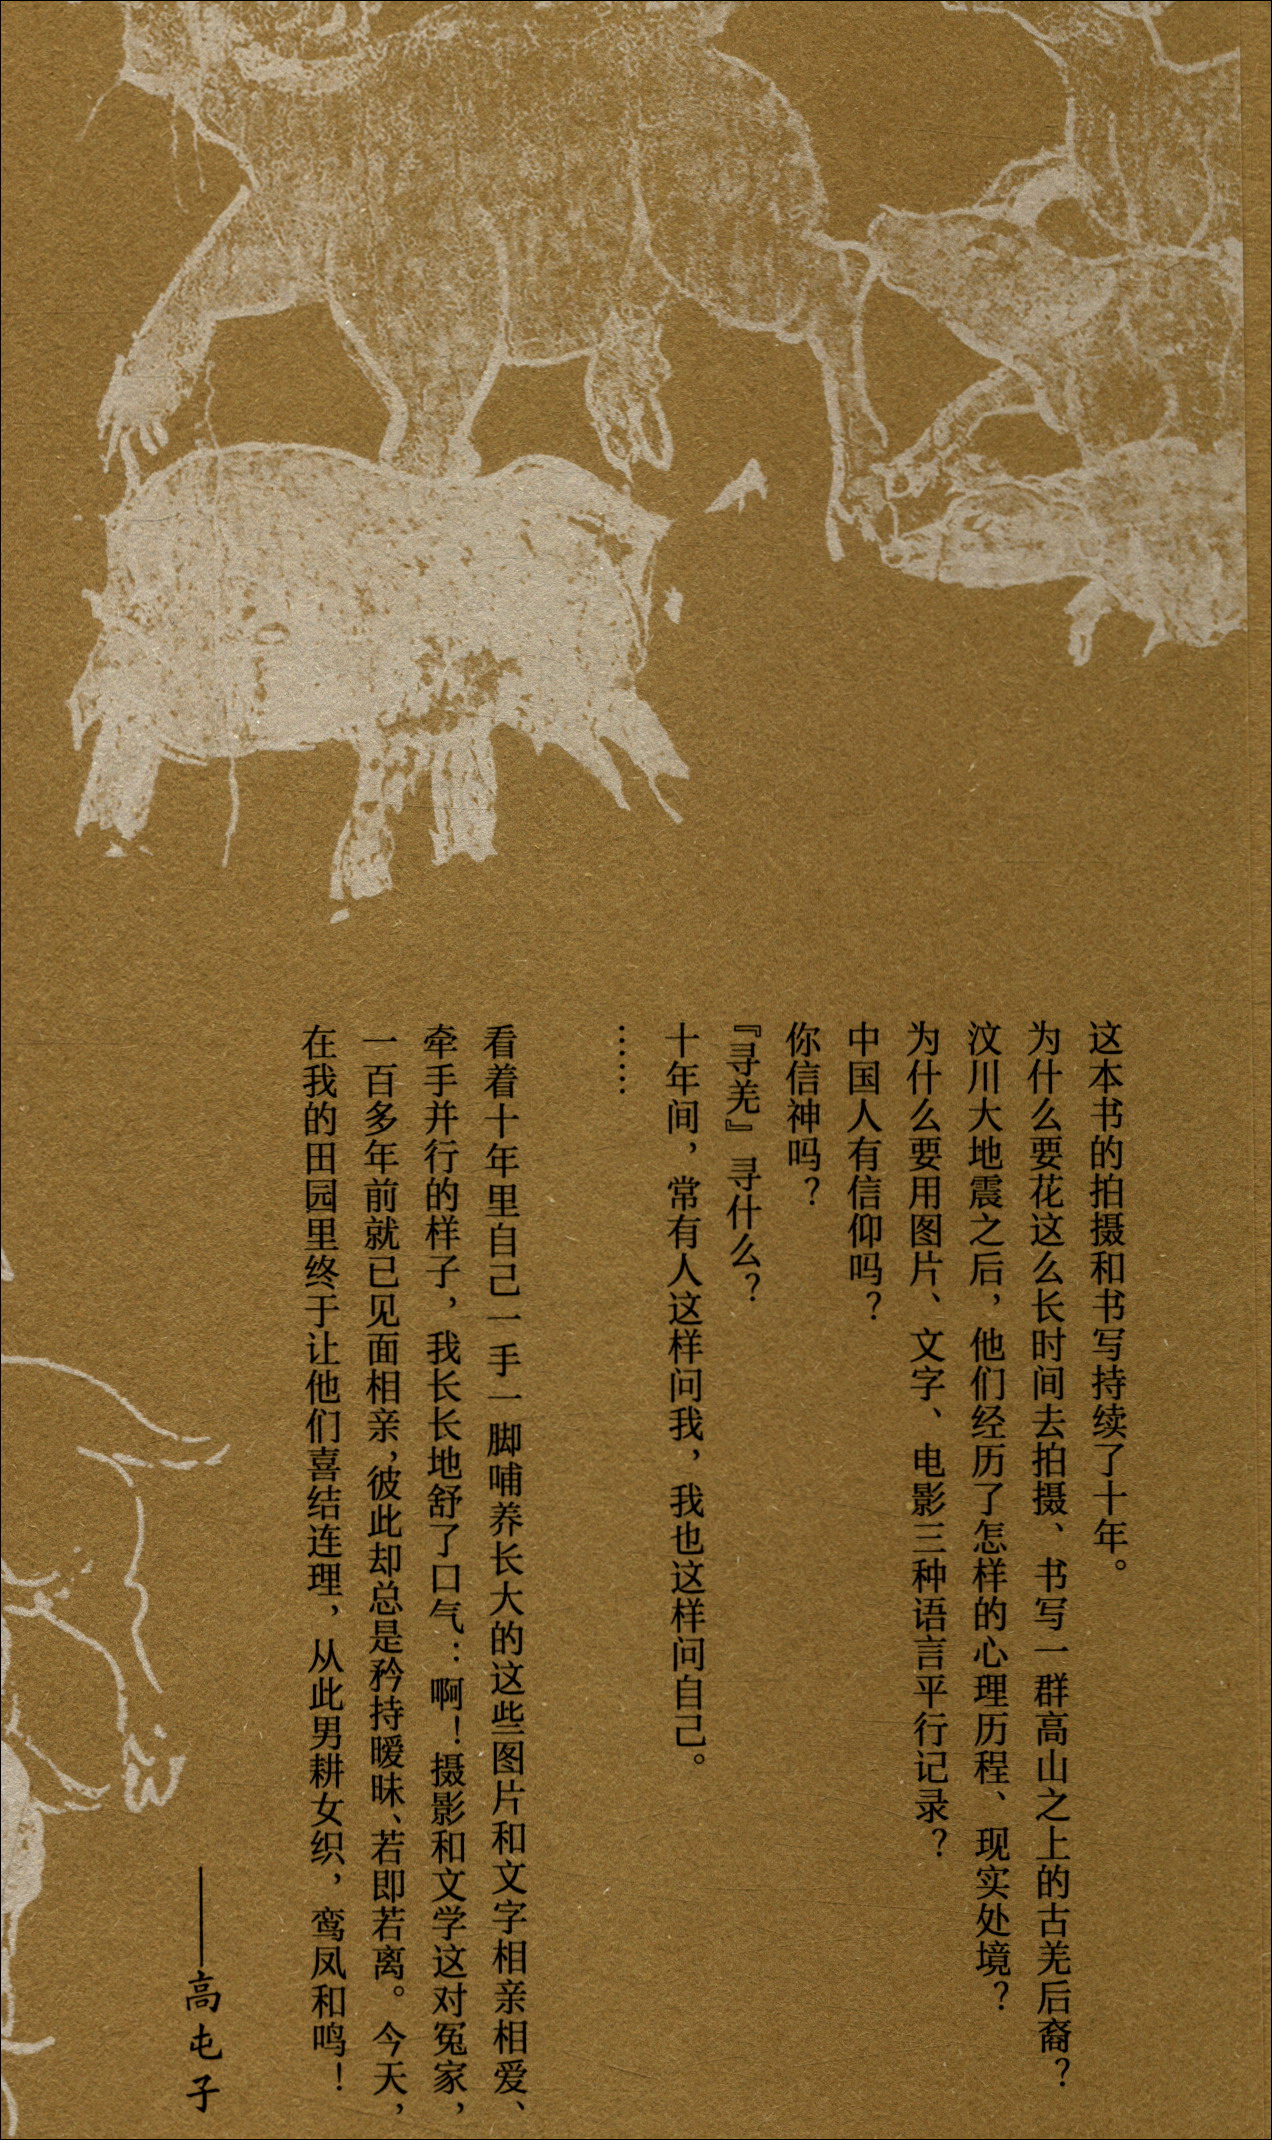 这本书的拍摄和书写持续了十年。
为什么要花这么长时间去拍摄、书写一群高山之上的古羌后裔？
汶川大地震之后，他们经历了怎样的心理历程、现实处境？
为什么要用图片、文字、电影三种语言平行记录？
中国人有信仰吗？
你信神吗？
『寻羌』寻什么？
十年间，常有人这样问我，我也这样问自己。
……
看着十年里自己一手一脚哺养长大的这些图片和文字相亲相爱、
牵手并行的样子，我长长地舒了口气：啊！摄影和文学这对冤家，
一百多年前就已见面相亲，彼此却总是矜持暧昧、若即若离。今天，
在我的田园里终于让他们喜结连理，从此男耕女织，鸾凤和鸣！
——高屯子